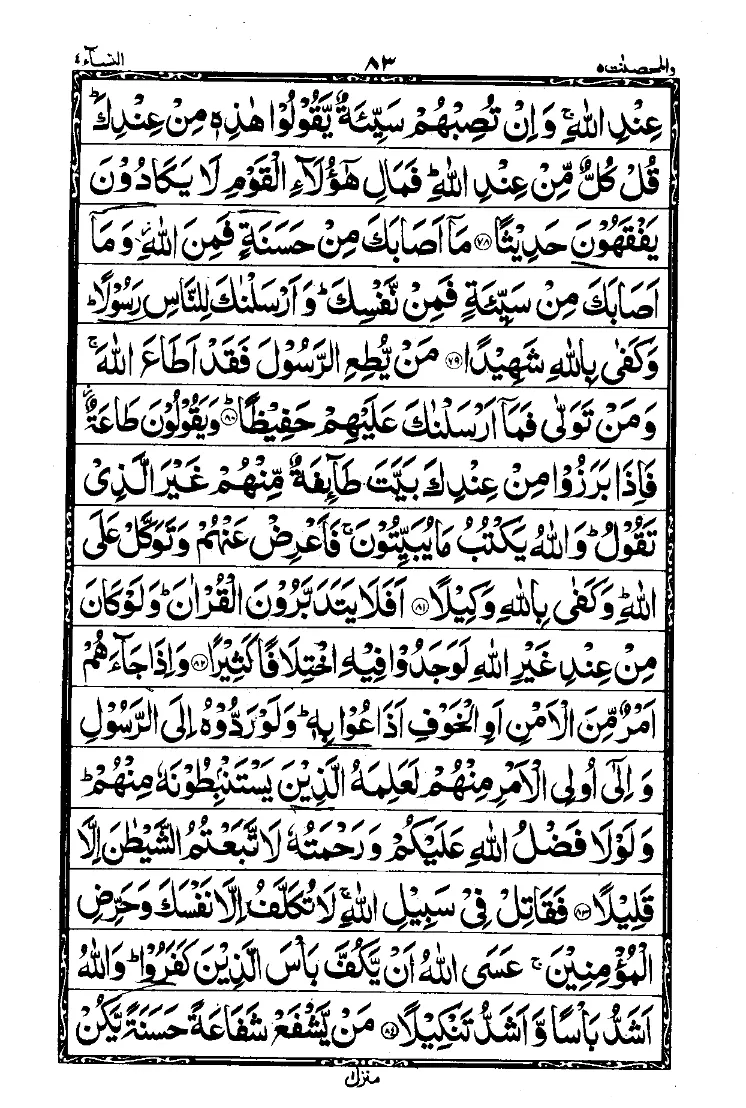 والمحصنت ٥ ٨٣ النسآء ٤
عِنْدِ اللّٰهِ ۚ وَاِنْ تُصِبْهُمْ سَيِّئَةٌ يَّقُوْلُوْا هٰذِهٖ مِنْ عِنْدِكَ ؕ
قُلْ كُلٌّ مِّنْ عِنْدِ اللّٰهِ ؕ فَمَالِ هٰٓؤُلَآءِ الْقَوْمِ لَا يَكَادُوْنَ
يَفْقَهُوْنَ حَدِيْثًا ﴿۷۸﴾ مَآ اَصَابَكَ مِنْ حَسَنَةٍ فَمِنَ اللّٰهِ ؗ وَمَآ
اَصَابَكَ مِنْ سَيِّئَةٍ فَمِنْ نَّفْسِكَ ؕ وَاَرْسَلْنٰكَ لِلنَّاسِ رَسُوْلًا ؕ
وَكَفٰى بِاللّٰهِ شَهِيْدًا ﴿۷۹﴾ مَنْ يُّطِعِ الرَّسُوْلَ فَقَدْ اَطَاعَ اللّٰهَ ۚ
وَمَنْ تَوَلّٰى فَمَآ اَرْسَلْنٰكَ عَلَيْهِمْ حَفِيْظًا ؕ ﴿۸۰﴾ وَيَقُوْلُوْنَ طَاعَةٌ ؗ
فَاِذَا بَرَزُوْا مِنْ عِنْدِكَ بَيَّتَ طَآئِفَةٌ مِّنْهُمْ غَيْرَ الَّذِىْ
تَقُوْلُ ؕ وَاللّٰهُ يَكْتُبُ مَا يُبَيِّتُوْنَ ۚ فَاَعْرِضْ عَنْهُمْ وَتَوَكَّلْ عَلَى
اللّٰهِ ؕ وَكَفٰى بِاللّٰهِ وَكِيْلًا ﴿۸۱﴾ اَفَلَا يَتَدَبَّرُوْنَ الْقُرْاٰنَ ؕ وَلَوْ كَانَ
مِنْ عِنْدِ غَيْرِ اللّٰهِ لَوَجَدُوْا فِيْهِ اخْتِلَافًا كَثِيْرًا ﴿۸۲﴾ وَاِذَا جَآءَهُمْ
اَمْرٌ مِّنَ الْاَمْنِ اَوِ الْخَوْفِ اَذَاعُوْا بِهٖ ؕ وَلَوْ رَدُّوْهُ اِلَى الرَّسُوْلِ
وَاِلٰٓى اُولِى الْاَمْرِ مِنْهُمْ لَعَلِمَهُ الَّذِيْنَ يَسْتَنْۢبِطُوْنَهٗ مِنْهُمْ ؕ
وَلَوْلَا فَضْلُ اللّٰهِ عَلَيْكُمْ وَرَحْمَتُهٗ لَاتَّبَعْتُمُ الشَّيْطٰنَ اِلَّا
قَلِيْلًا ﴿۸۳﴾ فَقَاتِلْ فِىْ سَبِيْلِ اللّٰهِ ۚ لَا تُكَلَّفُ اِلَّا نَفْسَكَ وَحَرِّضِ
الْمُؤْمِنِيْنَ ۚ عَسَى اللّٰهُ اَنْ يَّكُفَّ بَاْسَ الَّذِيْنَ كَفَرُوْا ؕ وَاللّٰهُ
اَشَدُّ بَاْسًا وَّاَشَدُّ تَنْكِيْلًا ﴿۸۴﴾ مَنْ يَّشْفَعْ شَفَاعَةً حَسَنَةً يَّكُنْ
منزل ۱